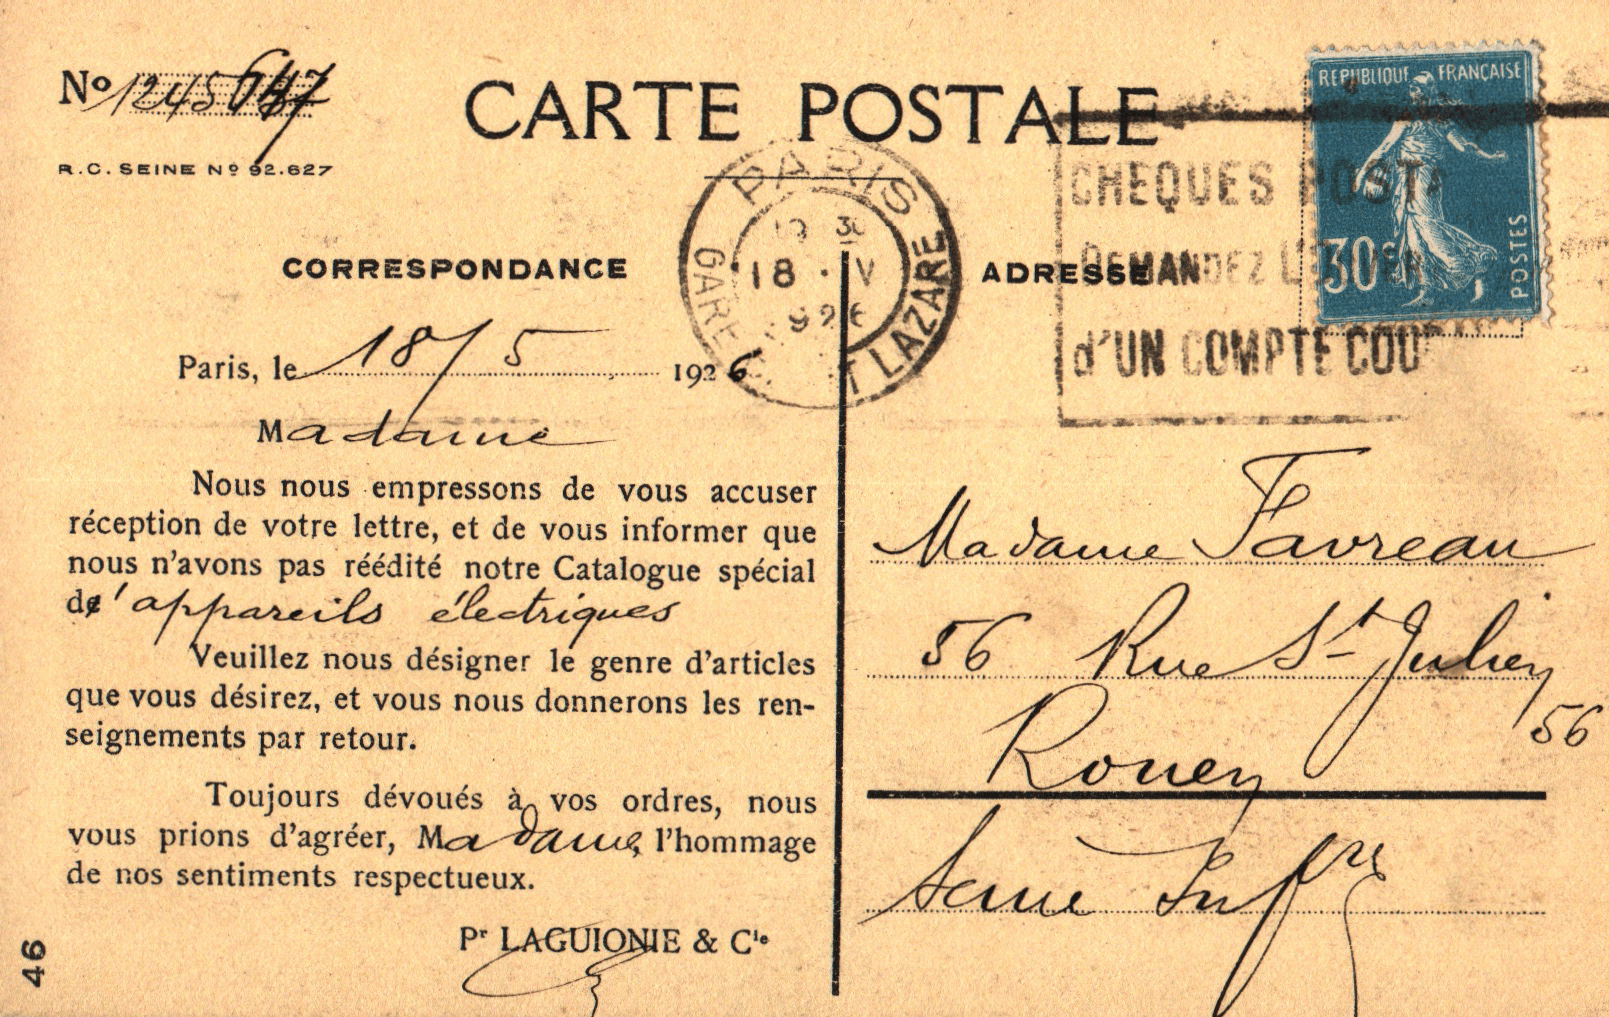 No 1245647
R.C. SEINE No 92.627
CARTE POSTALE
REPUBLIQUE FRANÇAISE
30c
POSTES
PARIS
18 · V
GARE LAZARE
CHEQUES POST
DEMANDEZ
d'UN COMPTE COU
CORRESPONDANCE
ADRESSE
Paris, le 18/5 1926
Madame
Nous nous empressons de vous accuser
réception de votre lettre, et de vous informer que
nous n'avons pas réédité notre Catalogue spécial
d'appareils électriques
Veuillez nous désigner le genre d'articles
que vous désirez, et vous nous donnerons les ren-
seignements par retour.
Toujours dévoués à vos ordres, nous
vous prions d'agréer, Madame, l'hommage
de nos sentiments respectueux.
Pr LAGUIONIE & Cie
46
Madame Favreau
56 Rue St Julien
56
Rouen
Seine Infre